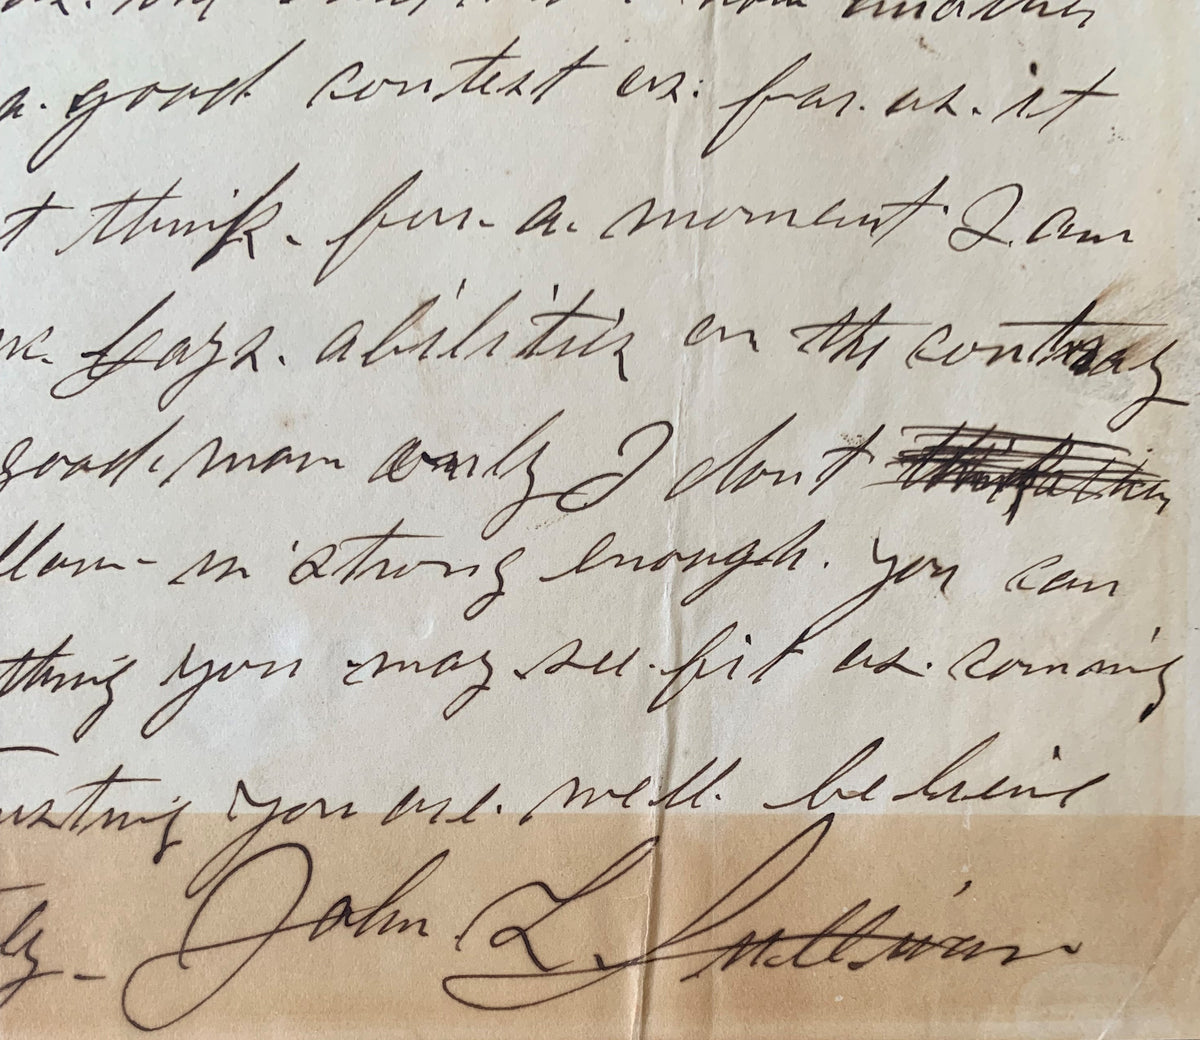 another
a. good contest as. far. as. it
t think. for. a. moment I am
abilities on the contray
good. man only I dont
strong enough. you can
thing you may see. fit as. coming
usting you are. well. believe
ly - John. L. Sullivan